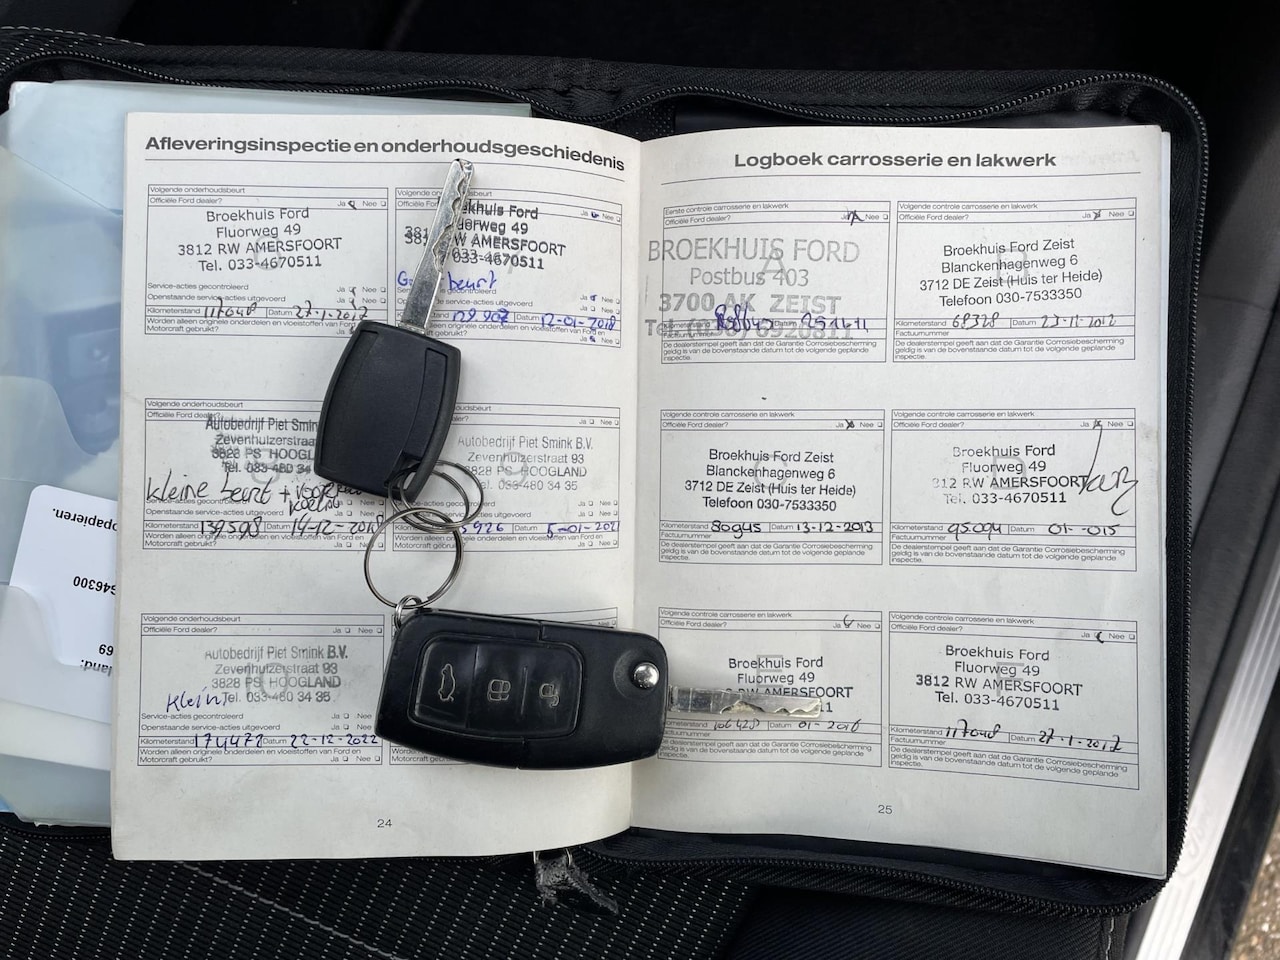 Afleveringsinspectie en onderhoudsgeschiedenis
Volgende onderhoudsbeurt
Officiële Ford dealer? Ja Nee
Broekhuis Ford
Fluorweg 49
3812 RW AMERSFOORT
Tel. 033-4670511
Service-acties gecontroleerd
Openstaande service-acties uitgevoerd
Kilometerstand 117048 Datum 27-1-2017
Worden alleen originele onderdelen en vloeistoffen van Ford en
Motorcraft gebruikt? Ja
Ja Nee
khuis Ford
uorweg 49
W AMERSFOORT
033-4670511
beurt
gecontroleerd
service-acties uitgevoerd Ja Nee
stand 128.907 Datum 12-01-2018
originele onderdelen en vloeistoffen van Ford en
gebruikt? Ja Nee
Volgende onderhoudsbeurt
Officiële Ford dealer?
Autobedrijf Piet Smin
Zevenhuizerstraa
3828 PS HOOGL
Tel. 033-480 34
kleine beurt +
Kilometerstand 139598 Datum 14-12-2018
Worden alleen originele onderdelen en vloeistoffen van Ford en
Motorcraft gebruikt? Ja Nee
onderhoudsbeurt
dealer? Ja Nee
Autobedrijf Piet Smink B.V.
Zevenhuizerstraat 93
3828 PS HOOGLAND
033-480 34 35
926 Datum 5-01-2021
Worden alleen originele onderdelen en vloeistoffen van Ford en
Motorcraft gebruikt? Ja Nee
Volgende onderhoudsbeurt
Officiële Ford dealer? Ja Nee
Autobedrijf Piet Smink B.V.
Zevenhuizerstraat 93
3828 PS HOOGLAND
Tel. 033-480 34 35
Klein
Service-acties gecontroleerd Ja Nee
Openstaande service-acties uitgevoerd Ja Nee
Kilometerstand 174477 Datum 22-12-2022
Worden alleen originele onderdelen en vloeistoffen van Ford en
Motorcraft gebruikt? Ja Nee
24
Logboek carrosserie en lakwerk
Eerste controle carrosserie en lakwerk
Officiële Ford dealer? Ja Nee
A
BROEKHUIS FORD
Postbus 403
3700 AK ZEIST
Kilometerstand Datum
De dealerstempel geeft aan dat de Garantie Corrosiebescherming
geldig is van de bovenstaande datum tot de volgende geplande
inspectie.
Volgende controle carrosserie en lakwerk
Officiële Ford dealer? Ja Nee
B
Broekhuis Ford Zeist
Blanckenhagenweg 6
3712 DE Zeist (Huis ter Heide)
Telefoon 030-7533350
Kilometerstand 68328 Datum 23-11-2012
Factuurnummer
De dealerstempel geeft aan dat de Garantie Corrosiebescherming
geldig is van de bovenstaande datum tot de volgende geplande
inspectie.
Volgende controle carrosserie en lakwerk
Officiële Ford dealer? Ja Nee
C
Broekhuis Ford Zeist
Blanckenhagenweg 6
3712 DE Zeist (Huis ter Heide)
Telefoon 030-7533350
Kilometerstand 80945 Datum 13-12-2013
Factuurnummer
De dealerstempel geeft aan dat de Garantie Corrosiebescherming
geldig is van de bovenstaande datum tot de volgende geplande
inspectie.
Volgende controle carrosserie en lakwerk
Officiële Ford dealer? Ja Nee
D
Broekhuis Ford
Fluorweg 49
3812 RW AMERSFOORT
Tel. 033-4670511
Kilometerstand 95.094 Datum 01-015
Factuurnummer
De dealerstempel geeft aan dat de Garantie Corrosiebescherming
geldig is van de bovenstaande datum tot de volgende geplande
inspectie.
Volgende controle carrosserie en lakwerk
Officiële Ford dealer? Ja Nee
E
Broekhuis Ford
Fluorweg 49
RW AMERSFOORT
Kilometerstand 106428 Datum 01-2016
Factuurnummer
De dealerstempel geeft aan dat de Garantie Corrosiebescherming
geldig is van de bovenstaande datum tot de volgende geplande
inspectie.
Volgende controle carrosserie en lakwerk
Officiële Ford dealer? Ja Nee
F
Broekhuis Ford
Fluorweg 49
3812 RW AMERSFOORT
Tel. 033-4670511
Kilometerstand 117048 Datum 27-1-2017
Factuurnummer
De dealerstempel geeft aan dat de Garantie Corrosiebescherming
geldig is van de bovenstaande datum tot de volgende geplande
inspectie.
25
opapieren.
646300
land:
69